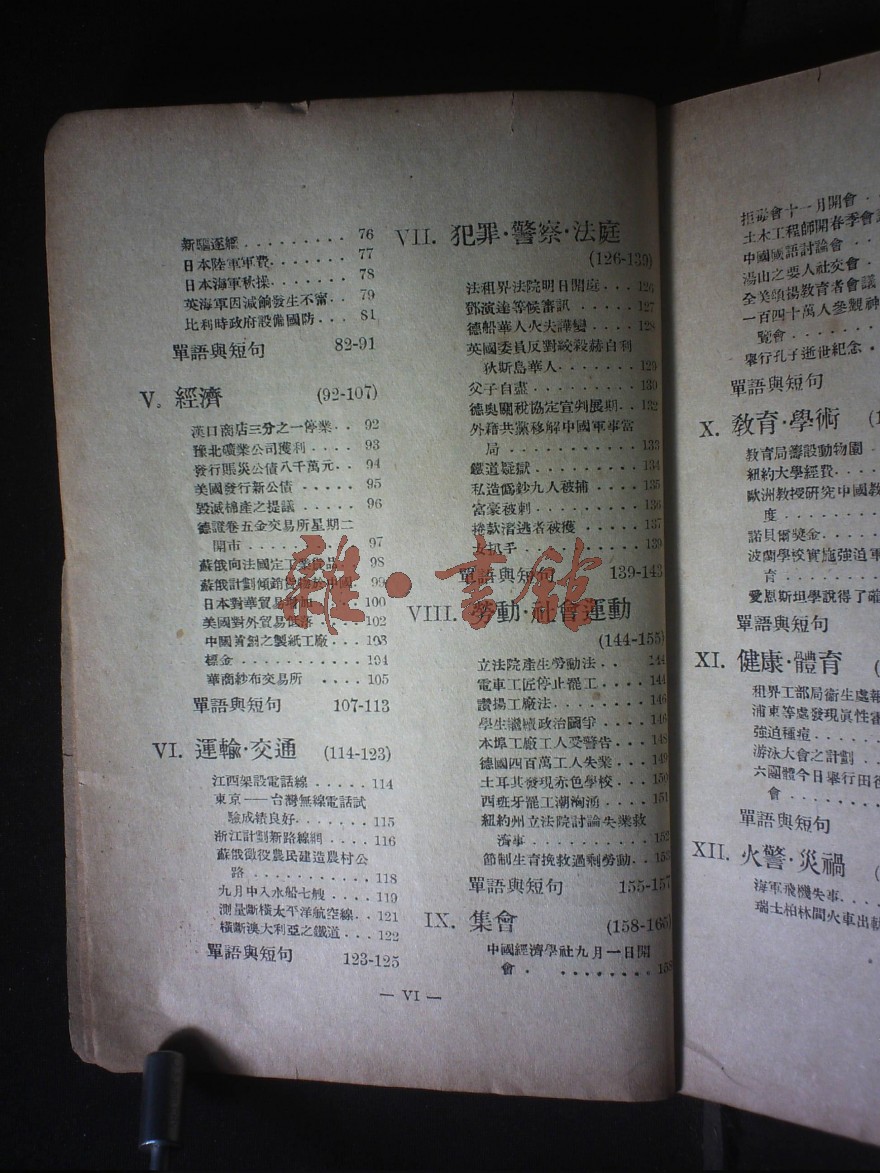 新驅逐艦 ......... 76
日本陸軍軍費........ 77
日本海軍秋操....... 78
英海軍因減餉發生不審.. 79
比利時政府設備國防... 81
單語與短句 82-91
V. 經濟 (92-107)
漢口商店三分之一停業.. 92
豫北礦業公司獲利.... 93
發行賑災公債八千萬元.. 94
美國發行新公債 ..... 95
毀滅棉產之提議 ..... 96
德證卷五金交易所星期二
開市 ......... 97
蘇俄向法國定 98
蘇俄計劃傾銷 99
日本對華貿易增加 100
美國對外貿易低落 .. 102
中國首創之製紙工廠... 103
標金 ........... 104
華商紗布交易所 .... 105
單語與短句 107-113
VI. 運輸·交通 (114-123)
江西架設電話線 ..... 114
東京——台灣無線電話試
驗成績良好....... 115
浙江計劃新路線網 .... 116
蘇俄徵役農民建造農村公
路 ........... 118
九月中入水船七艘 .... 119
測量斷橫太平洋航空線.. 121
橫斷澳大利亞之鐵道... 122
單語與短句 123-125
VII. 犯罪·警察·法庭
(126-139)
法租界法院明日開庭... 126
鄧演達等候審訊 ..... 127
德船華人火夫譁變.... 128
英國委員反對絞殺赫自利
狄斯島華人....... 129
父子自盡 ......... 130
德奧關稅協定宣判展期.. 132
外籍共黨移解中國軍事當
局 ........... 133
鐵道疑獄......... 134
私造僞鈔九人被捕 .... 135
富豪被刺......... 136
捲款潛逃者被獲 ..... 137
女扒手 139
單語與短句 139-143
VIII. 勞動·社會運動
(144-155)
立法院產生勞動法.. 144
電車工匠停止罷工.... 144
讚揚工廠法........ 146
學生繼續政治鬪爭 ... 146
本埠工廠工人受警告... 148
德國四百萬工人失業... 149
土耳其發現赤色學校... 150
西班牙罷工潮洶湧.... 151
紐約州立法院討論失業救
濟事 .......... 152
節制生育挽救過剩勞動.. 153
單語與短句 155-157
IX. 集會 (158-165)
中國經濟學社九月一日開
會 . ........ 158
— VI —
拒毒會十一月開會 .
土木工程師開春季會
中國國語討論會 ...
湯山之要人社交會 .
全美頌揚教育者會議
一百四十萬人參觀神
覽會 ........
舉行孔子逝世紀念 .
單語與短句
X. 教育·學術 (1
教育局籌設動物園 .
紐約大學經費....
歐洲教授研究中國教
度 .........
諾貝爾獎金.....
波蘭學校實施強迫軍
育 .........
愛恩斯坦學說得了確
單語與短句
XI. 健康·體育 (
租界工部局衛生處報
浦東等處發現眞性霍
強迫種痘.......
游泳大會之計劃 ...
六團體今日舉行田徑
會 .........
單語與短句
XII. 火警·災禍 (
海軍飛機失事....
瑞士柏林間火車出軌
雜·書館